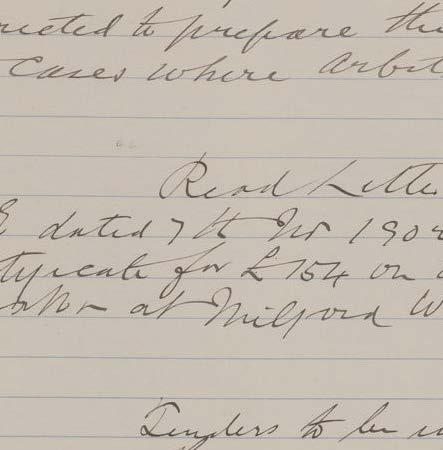 ructed to prepare the
Cases where Arbit
Read Lette
E dated 7th Nov 190
tificate for £154 on
at Milford W
Tenders to be